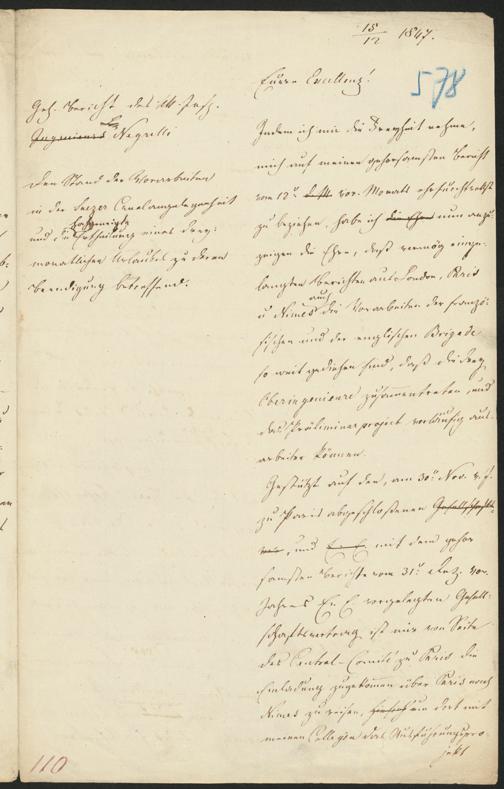 15/12 1847.
578
Geh. Bericht des
Ingenieurs Negrelli
den Stand der Vorarbeiten
in der Suezer Canalangelegenheit
und die Ertheilung eines drey-
monatlichen Urlaubes zu deren
Beendigung betreffend.
Euere Excellenz!
Indem ich mir die Freyheit nehme,
mich auf meinen gehorsamsten Bericht
vom 12t vor. Monats ehrfurchtsvollst
zu beziehen, habe ich die Ehre nun anzu-
zeigen die Ehre, daß vermög einge-
langten Berichten aus London, Paris
u Nimes auch die Vorarbeiten der franzö-
sischen und der englischen Brigade
so weit gediehen sind, daß die drey
Oberingenieure zusammentreten, und
das Präliminarproject vorläufig aus-
arbeiten können.
Gestützt auf den, am 30t Nov. v. J.
zu Paris abgeschloßenen Gesellschafts-
und E. E. mit dem gehor
samsten Berichte vom 31t vor.
Jahres E. E. vorgelegten Gesell-
schaftsvertrag ist mir von Seite
des Central-Comité zu Paris die
Einladung zugekommen über Paris nach
Nimes zu reisen, um dort mit
meinen Collegen das Ausführungspro-
jekt
110